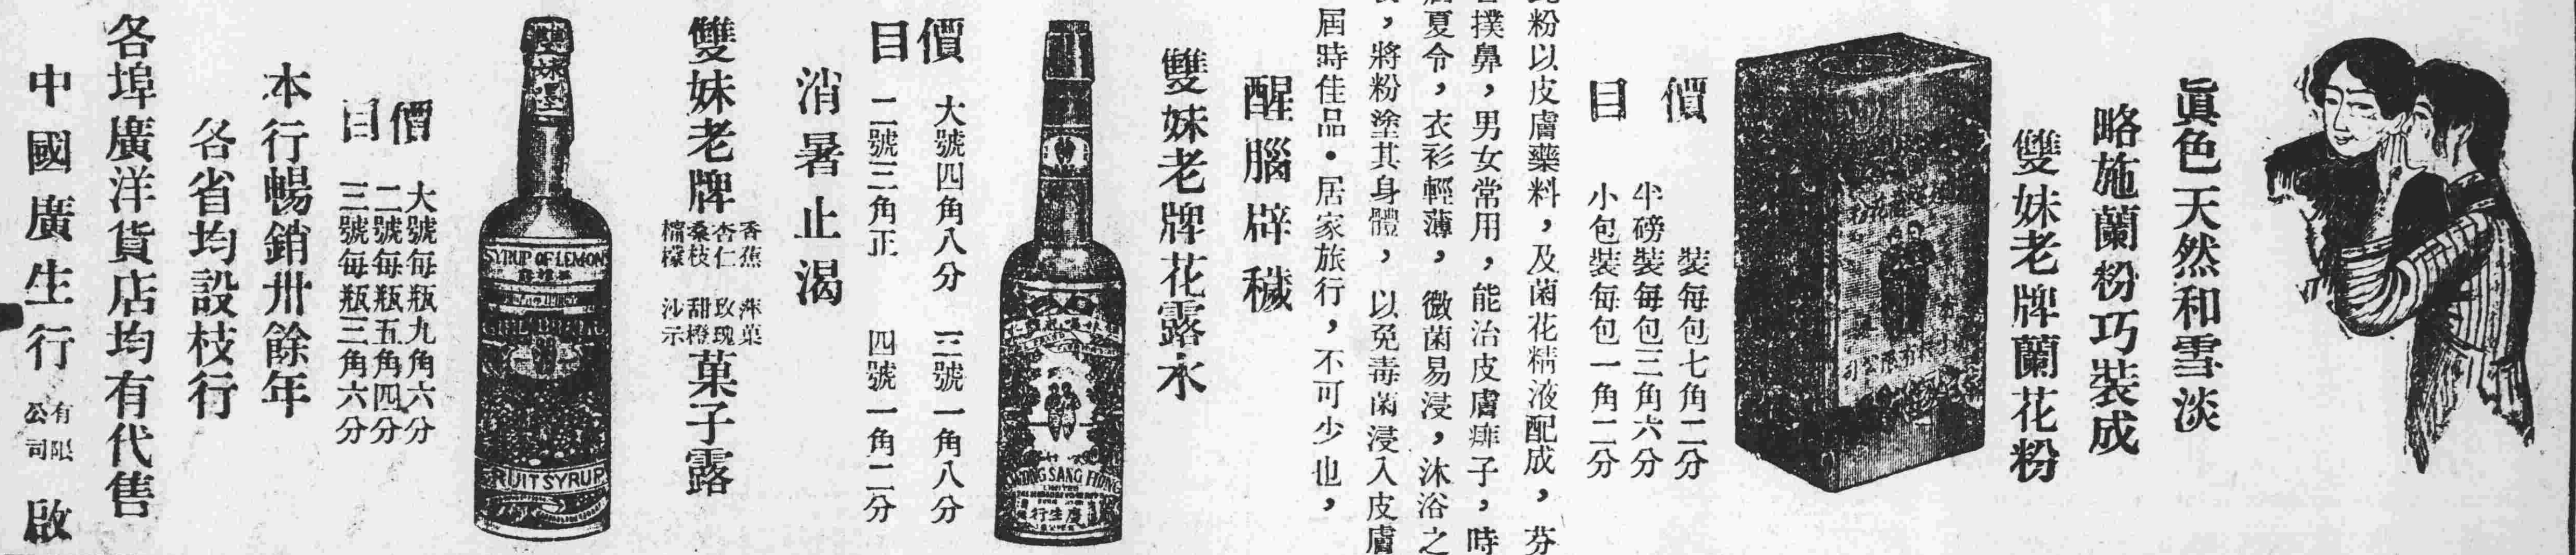 眞色天然和雪淡
略施蘭粉巧裝成
雙妹老牌蘭花粉
價目
裝每包七角二分
半磅裝每包三角六分
小包裝每包一角二分
粉以皮膚藥料，及菌花精液配成，芬
撲鼻，男女常用，能治皮膚痱子，時
夏令，衣衫輕薄，微菌易浸，沐浴之
，將粉塗其身體，以免毒菌浸入皮膚
屆時佳品·居家旅行，不可少也，
醒腦辟穢
雙妹老牌花露水
KWONG SANG HONG
LIMITED
行生廣
價目
大號四角八分 三號一角八分
二號三角正 四號一角二分
消暑止渴
雙妹老牌
香蕉 菠菓
杏仁 玫瑰
桑枝 甜橙
檸檬 沙示
菓子露
雙妹嚜
SYRUP OF LEMON
FRUIT SYRUP
價目
大號每瓶九角六分
二號每瓶五角四分
三號每瓶三角六分
本行暢銷卅餘年
各省均設枝行
各埠廣洋貨店均有代售
中國廣生行有限公司啟